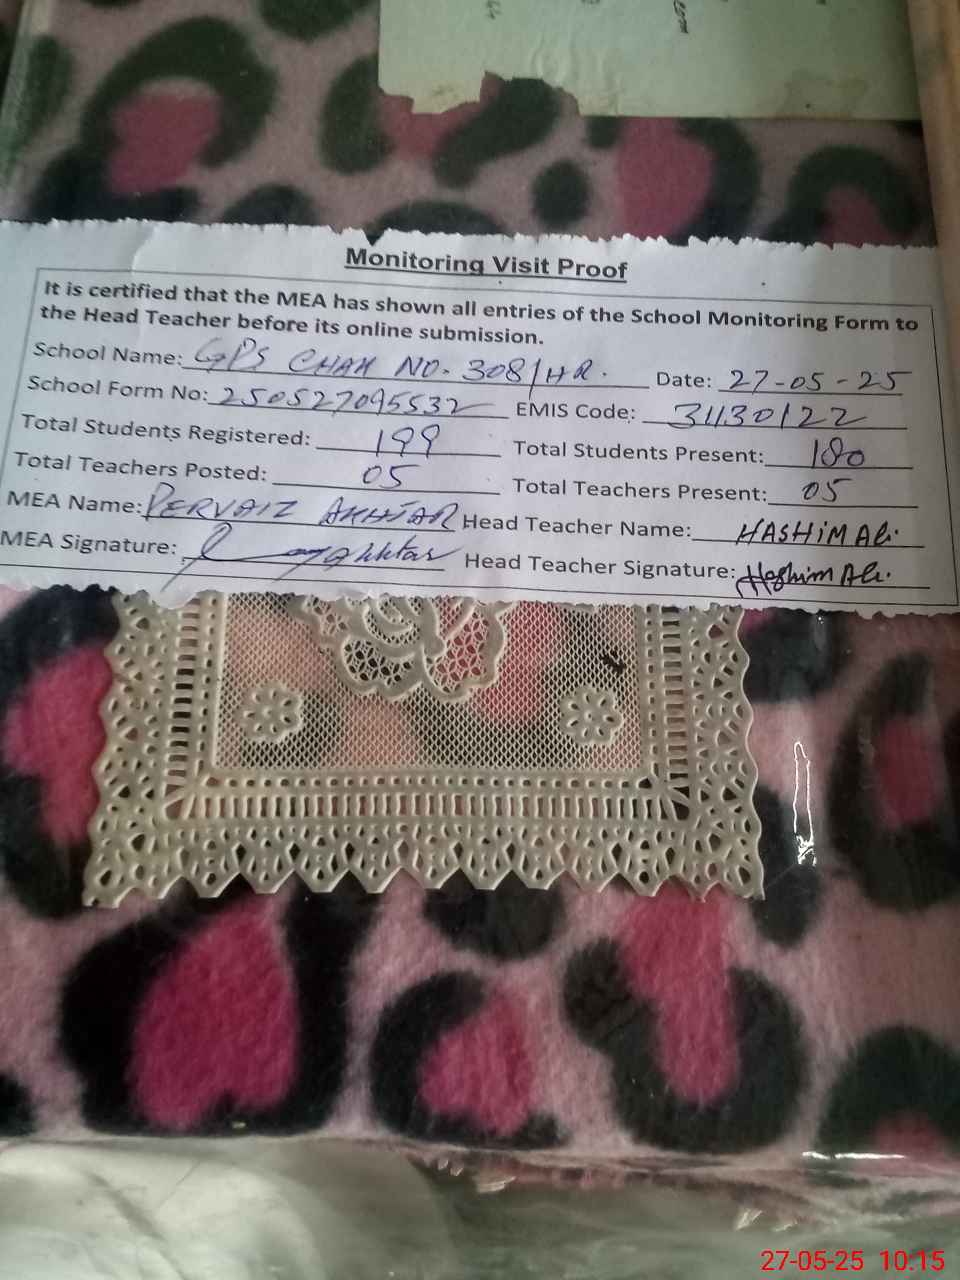 com
Monitoring Visit Proof
It is certified that the MEA has shown all entries of the School Monitoring Form to
the Head Teacher before its online submission.
School Name: GPS CHAK NO. 308/HR. Date: 27-05-25
School Form No: 250527095532 EMIS Code: 31130122
Total Students Registered: 199 Total Students Present: 180
Total Teachers Posted: 05 Total Teachers Present: 05
MEA Name: PERVAIZ AKHTAR Head Teacher Name: HASHIM Ali.
MEA Signature: Akhtar Head Teacher Signature: Hashim Ali.
27-05-25 10:15